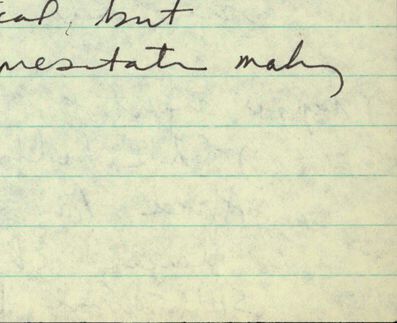 cal, but
presentatn making